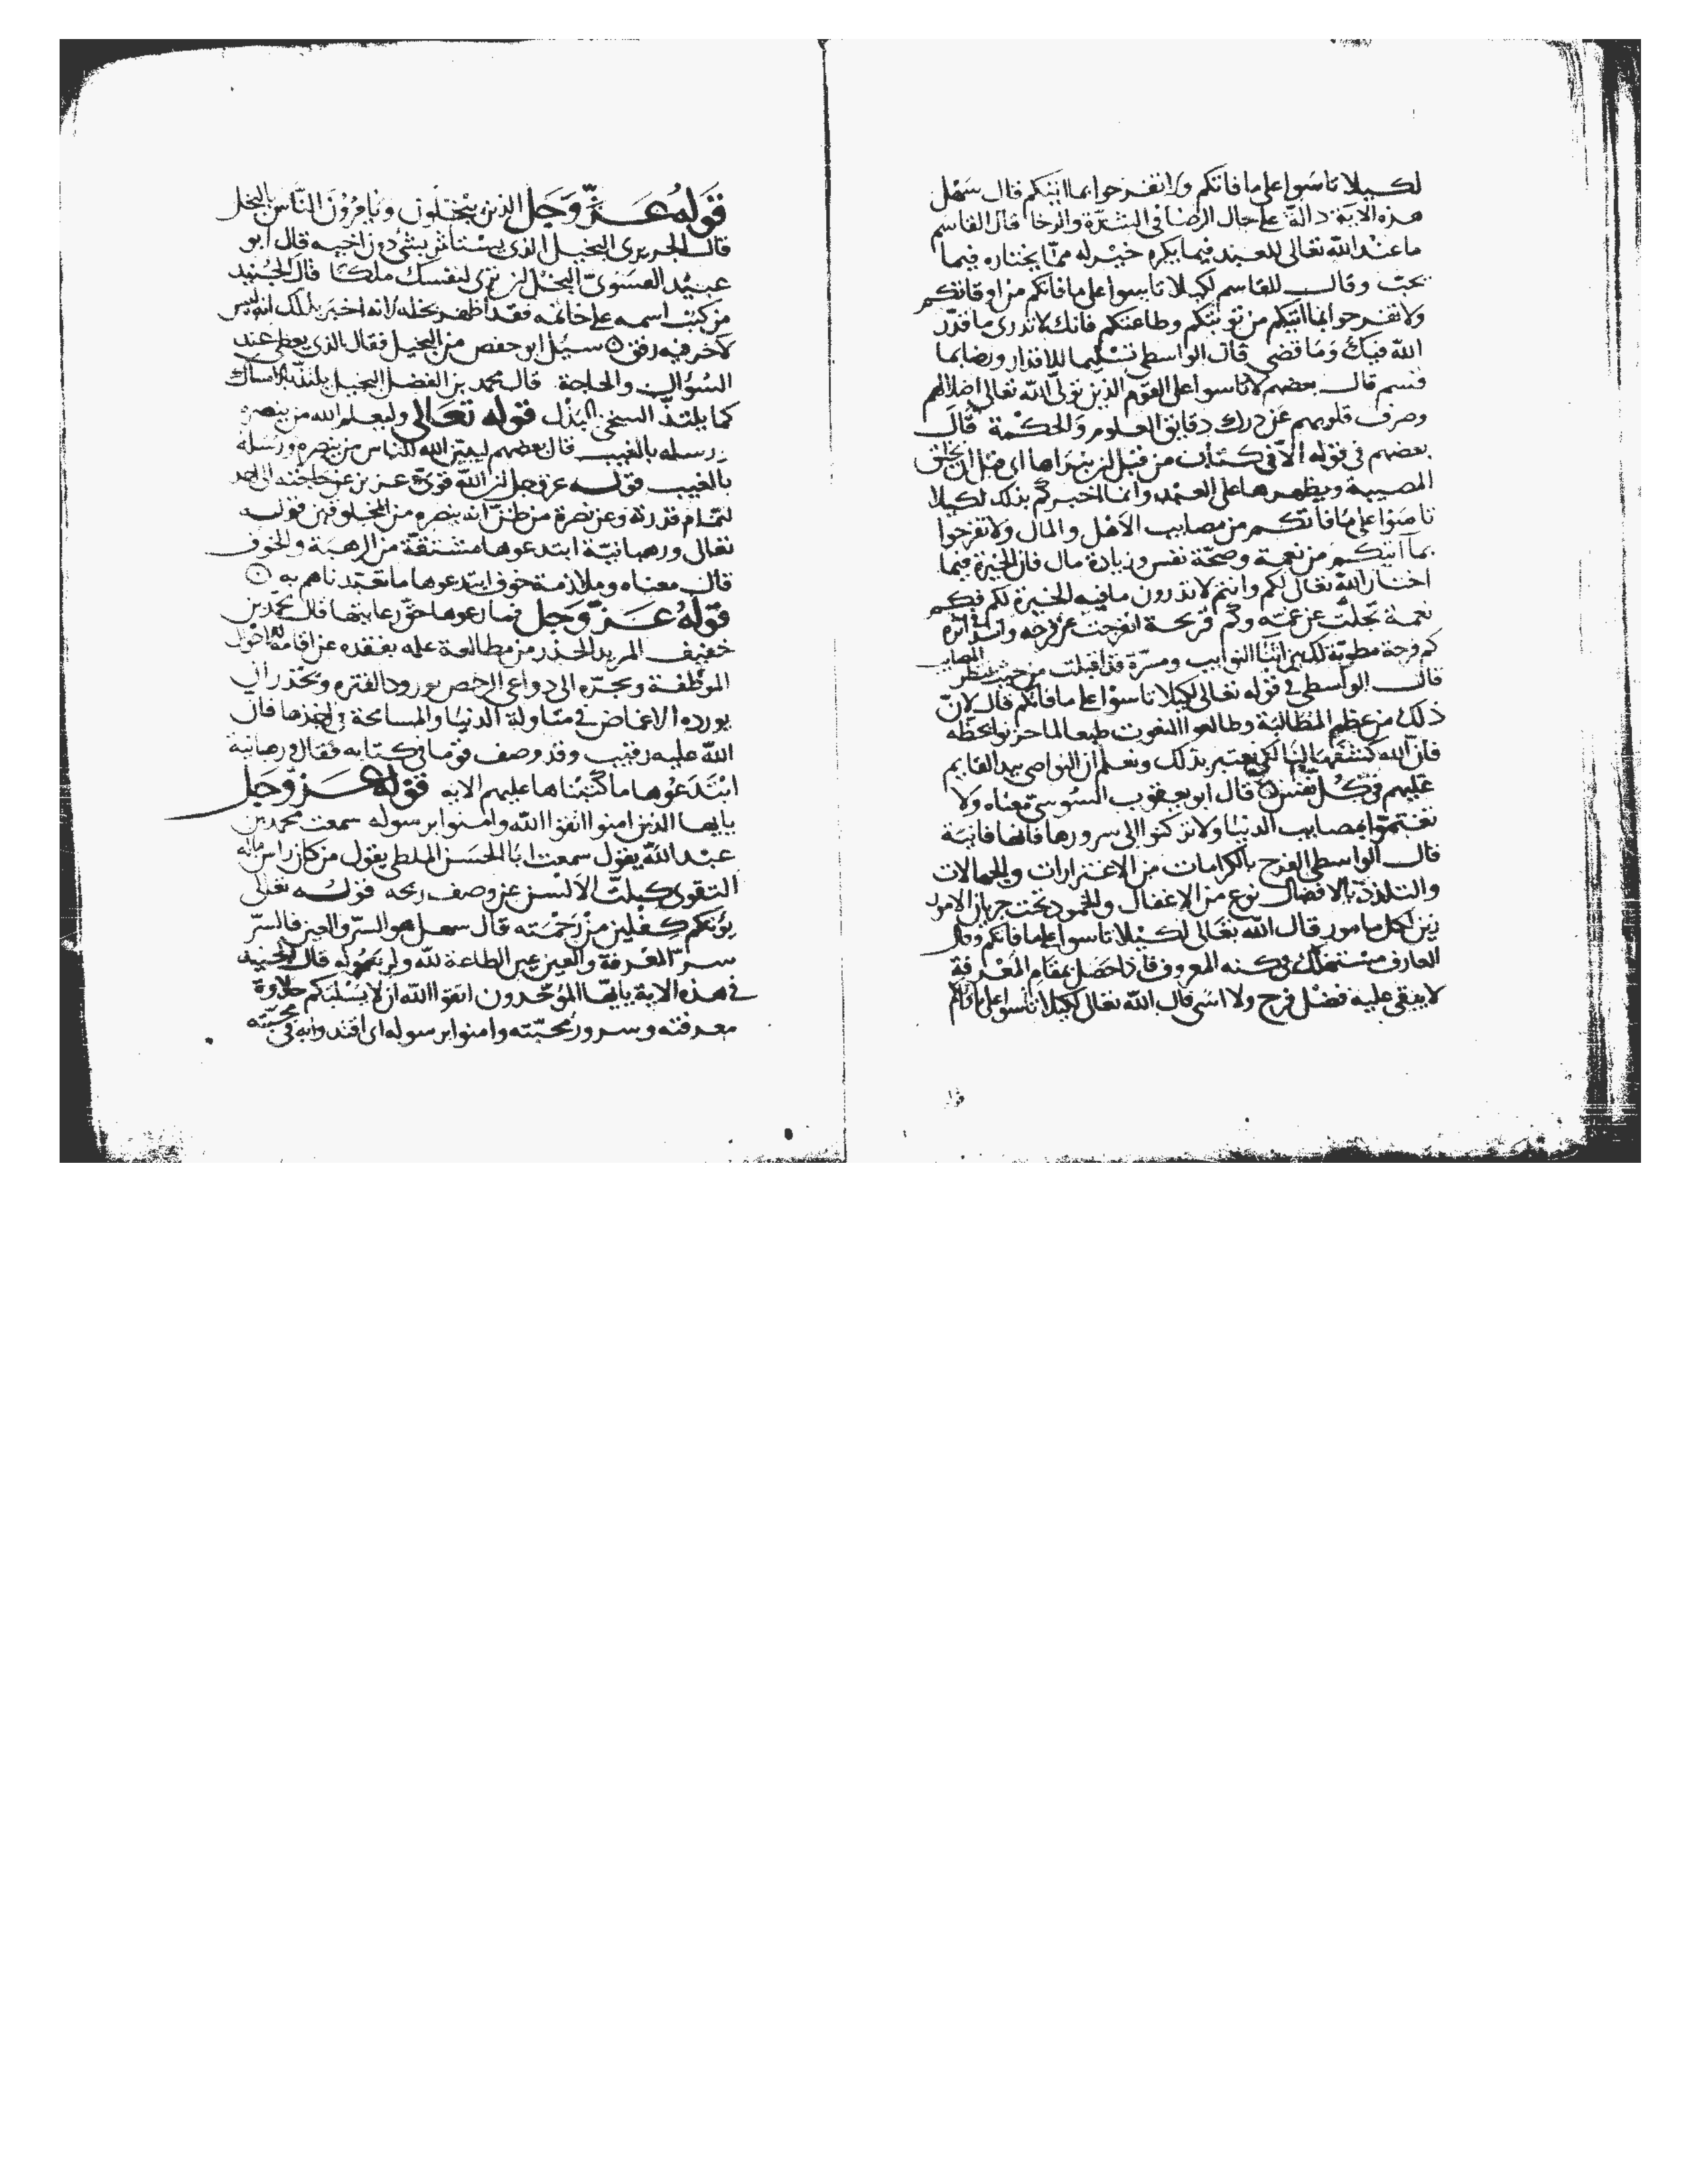 لكيلا تاسوا على ما فاتكم ولا تفرحوا بما اتيكم قال سهل
هذه الاية دالة على حال الرضا في الشدة والرخا قال القاسم
ما عند الله تعالى للعبد فيما يكره خير له مما يختاره فيما
يحب وقال القاسم لكيلا تاسوا على ما فاتكم من اوقاتكم
ولا تفرحوا بما اتيكم من توبتكم وطاعتكم فانك لا تدرى ما قدر
الله فيك وما قضى قال الواسطى تسليما للاقدار ورضا بما
قسم قال بعضهم لا تاسوا على القوم الذين تولى الله تعالى اضلالهم
وصرف قلوبهم عن درك دقايق العلوم والحكمة قال
بعضهم في قوله الا في كتاب من قبل ان نبراها اى قبل ان يخلق
المصيبة ويظهرها على العبد وانما اخبركم بذلك لكيلا
تاسوا على ما فاتكم من مصايب الاهل والمال ولا تفرحوا
بما آتيكم من نعمة وصحة نفس وزيادة مال فان الخيرة فيما
اختار الله تعالى لكم وانتم لا تدرون ما فيه الخيرة لكم فكم
نعمة تجلت عن غمة وكم قريحة انفرجت عن فرحه
كم فرحة مطوية لك بين اثنا النوايب ومسرة قد اقبلت من حيث تنتظر المصايب
قال الواسطى في قوله تعالى لكيلا تاسوا على ما فاتكم قال لان
ذلك من عظم المطالبة وطالعوا
فان الله لكى نعتبر بذلك ونعلم ان النواصى بيد القايم
عليهم في كل نفس قال ابو يعقوب السوسى معناه ولا
تغتموا بمصايب الدنيا ولا تركنوا الى سرورها فانها فانية
قال الواسطى الفرح بالكرامات من الاغترارات والجهالات
والتلذذ بالافضال نوع من الاغفال والخمود تحت جريان الامور
زين لكل مامور قال الله تعالى لكيلا تاسوا على ما فاتكم وقال
العارف مستهلك في كنه المعروف فاذا حصل بمقام المعرفة
لا يبقى عليه فضل فرح ولا اسى قال الله تعالى لكيلا تاسوا على ما فاتكم
قوله عز وجل الذين يبخلون ويامرون الناس بالبخل
قال الجريرى البخيل الذى يستاثر بشىء دون اخيه قال ابو
عبيد البسرى البخل ان ترى لنفسك ملكا قال الجنيد
من كتب اسمه على خاتمه فقد اظهر بخله لانه اخبر بذلك انه ليس
لاخر فيه رفق سيل ابو حفص من البخيل فقال الذى يعطى عند
السؤال والحاجة قال محمد بن الفضل البخيل يلتذ بالامساك
كما يلتذ السخى بالبذل قوله تعالى وليعلم الله من ينصره
ورسله بالغيب قال بعضهم ليميز الله للناس من ينصره ورسله
بالغيب قوله عز وجل ان الله قوى عزيز عن حاجته الى احد
لتمام قدرته وعن نصرة من ظن انه ينصره من المخلوقين قوله
تعالى ورهبانية ابتدعوها مشتقة من الرهبة والخوف
قال معناه وملازمة خوف ابتدعوها ما تعبدناهم به
قوله عز وجل فما رعوها حق رعايتها قال محمد بن
خفيف المريد الحذر من مطالعة علمه بفقده عن اقامة
الموظفة ويجره الى دواعى الرخص بورود الفترة ويحذر ان
يورده الاغماض في متاولة الدنيا والمسامحة في اخذها فان
الله عليه رقيب وقد وصف قوما في كتابه فقال ورهبانية
ابتدعوها ما كتبناها عليهم الاية قوله عز وجل
يايها الذين امنوا اتقوا الله وامنوا برسوله سمعت محمد بن
عبد الله يقول سمعت ابا الحسن الملطى يقول من كان راس ماله
التقوى كلت الالسن عن وصف ربحه قوله تعالى
يؤتكم كفلين من رحمته قال سهل هو السر والعين فالسر
سر المعرفة والعين عين الطاعة لله ولرسوله قال الجنيد
في هذه الاية يايها الموحدون اتقوا الله ان لا يسلبكم حلاوة
معرفته وسرور محبته وامنوا برسوله اى اقتدوا به في محبته